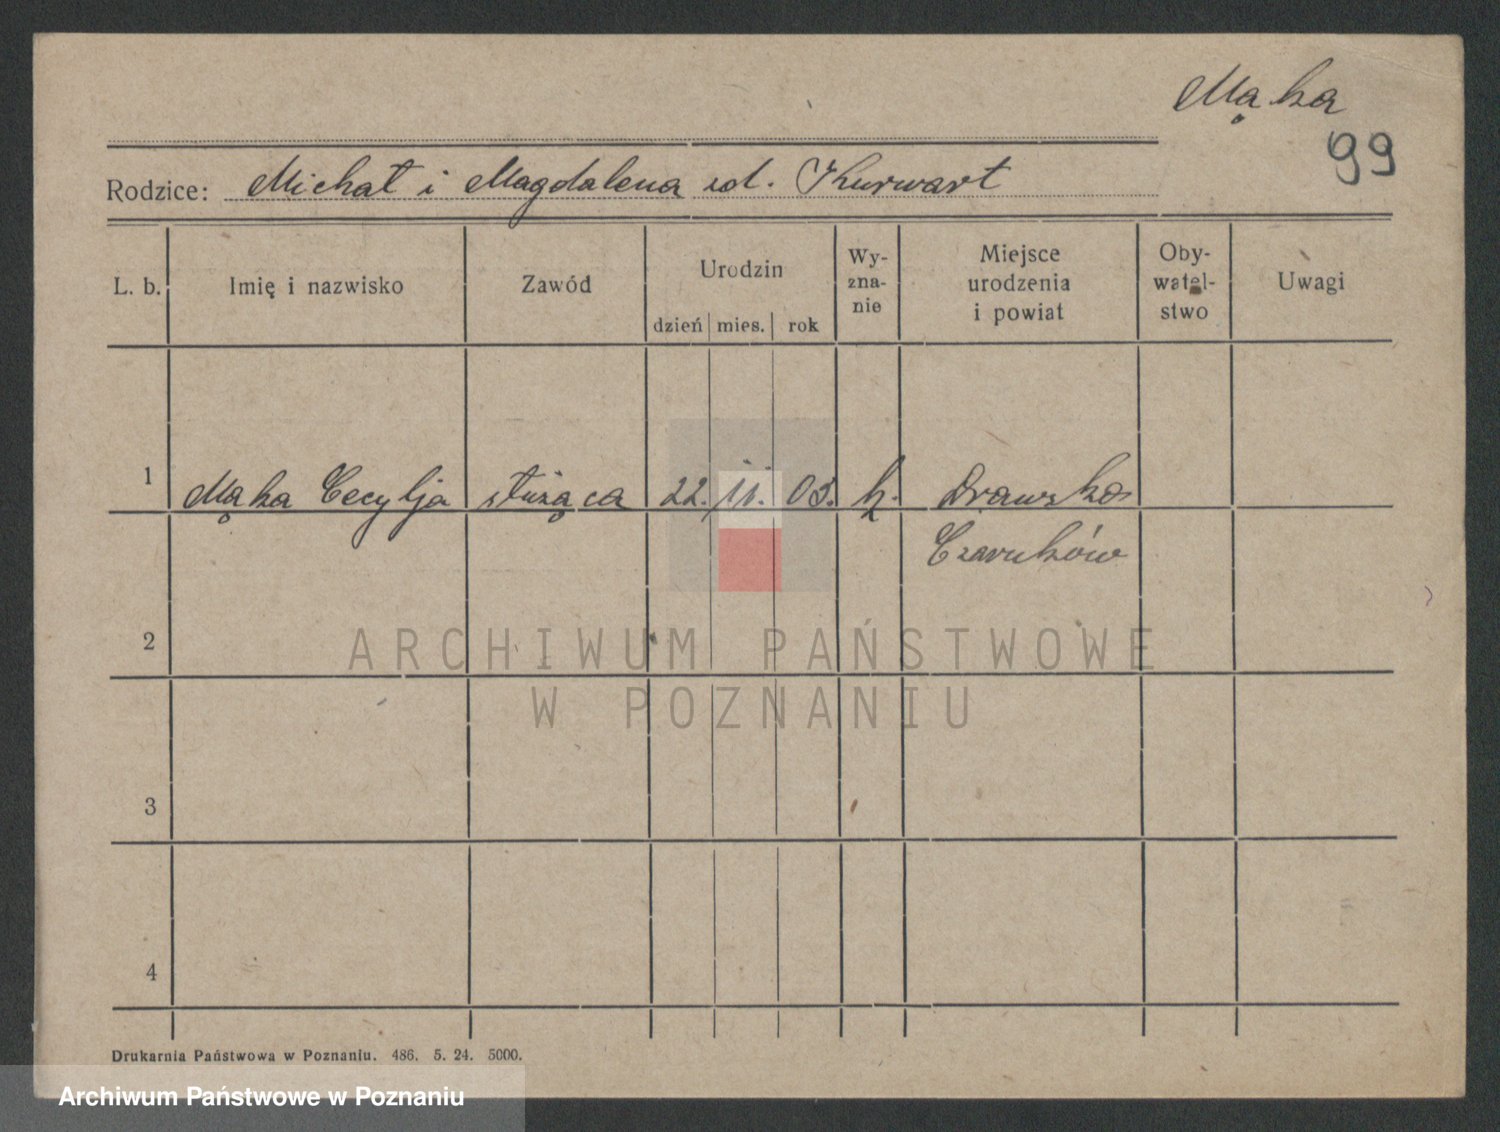 Mąka
99
Rodzice: Michał i Magdalena zd. Kurwart
L. b.
Imię i nazwisko
Zawód
Urodzin
dzień mies. rok
Wy-
zna-
nie
Miejsce
urodzenia
i powiat
Oby-
watel-
stwo
Uwagi
1 Mąka Cecylja służąca 22. 11. 03. k. Drawsko
Czarnków
2
ARCHIWUM PAŃSTWOWE
W POZNANIU
3
4
Drukarnia Państwowa w Poznaniu. 486. 5. 24. 5000.
Archiwum Państwowe w Poznaniu